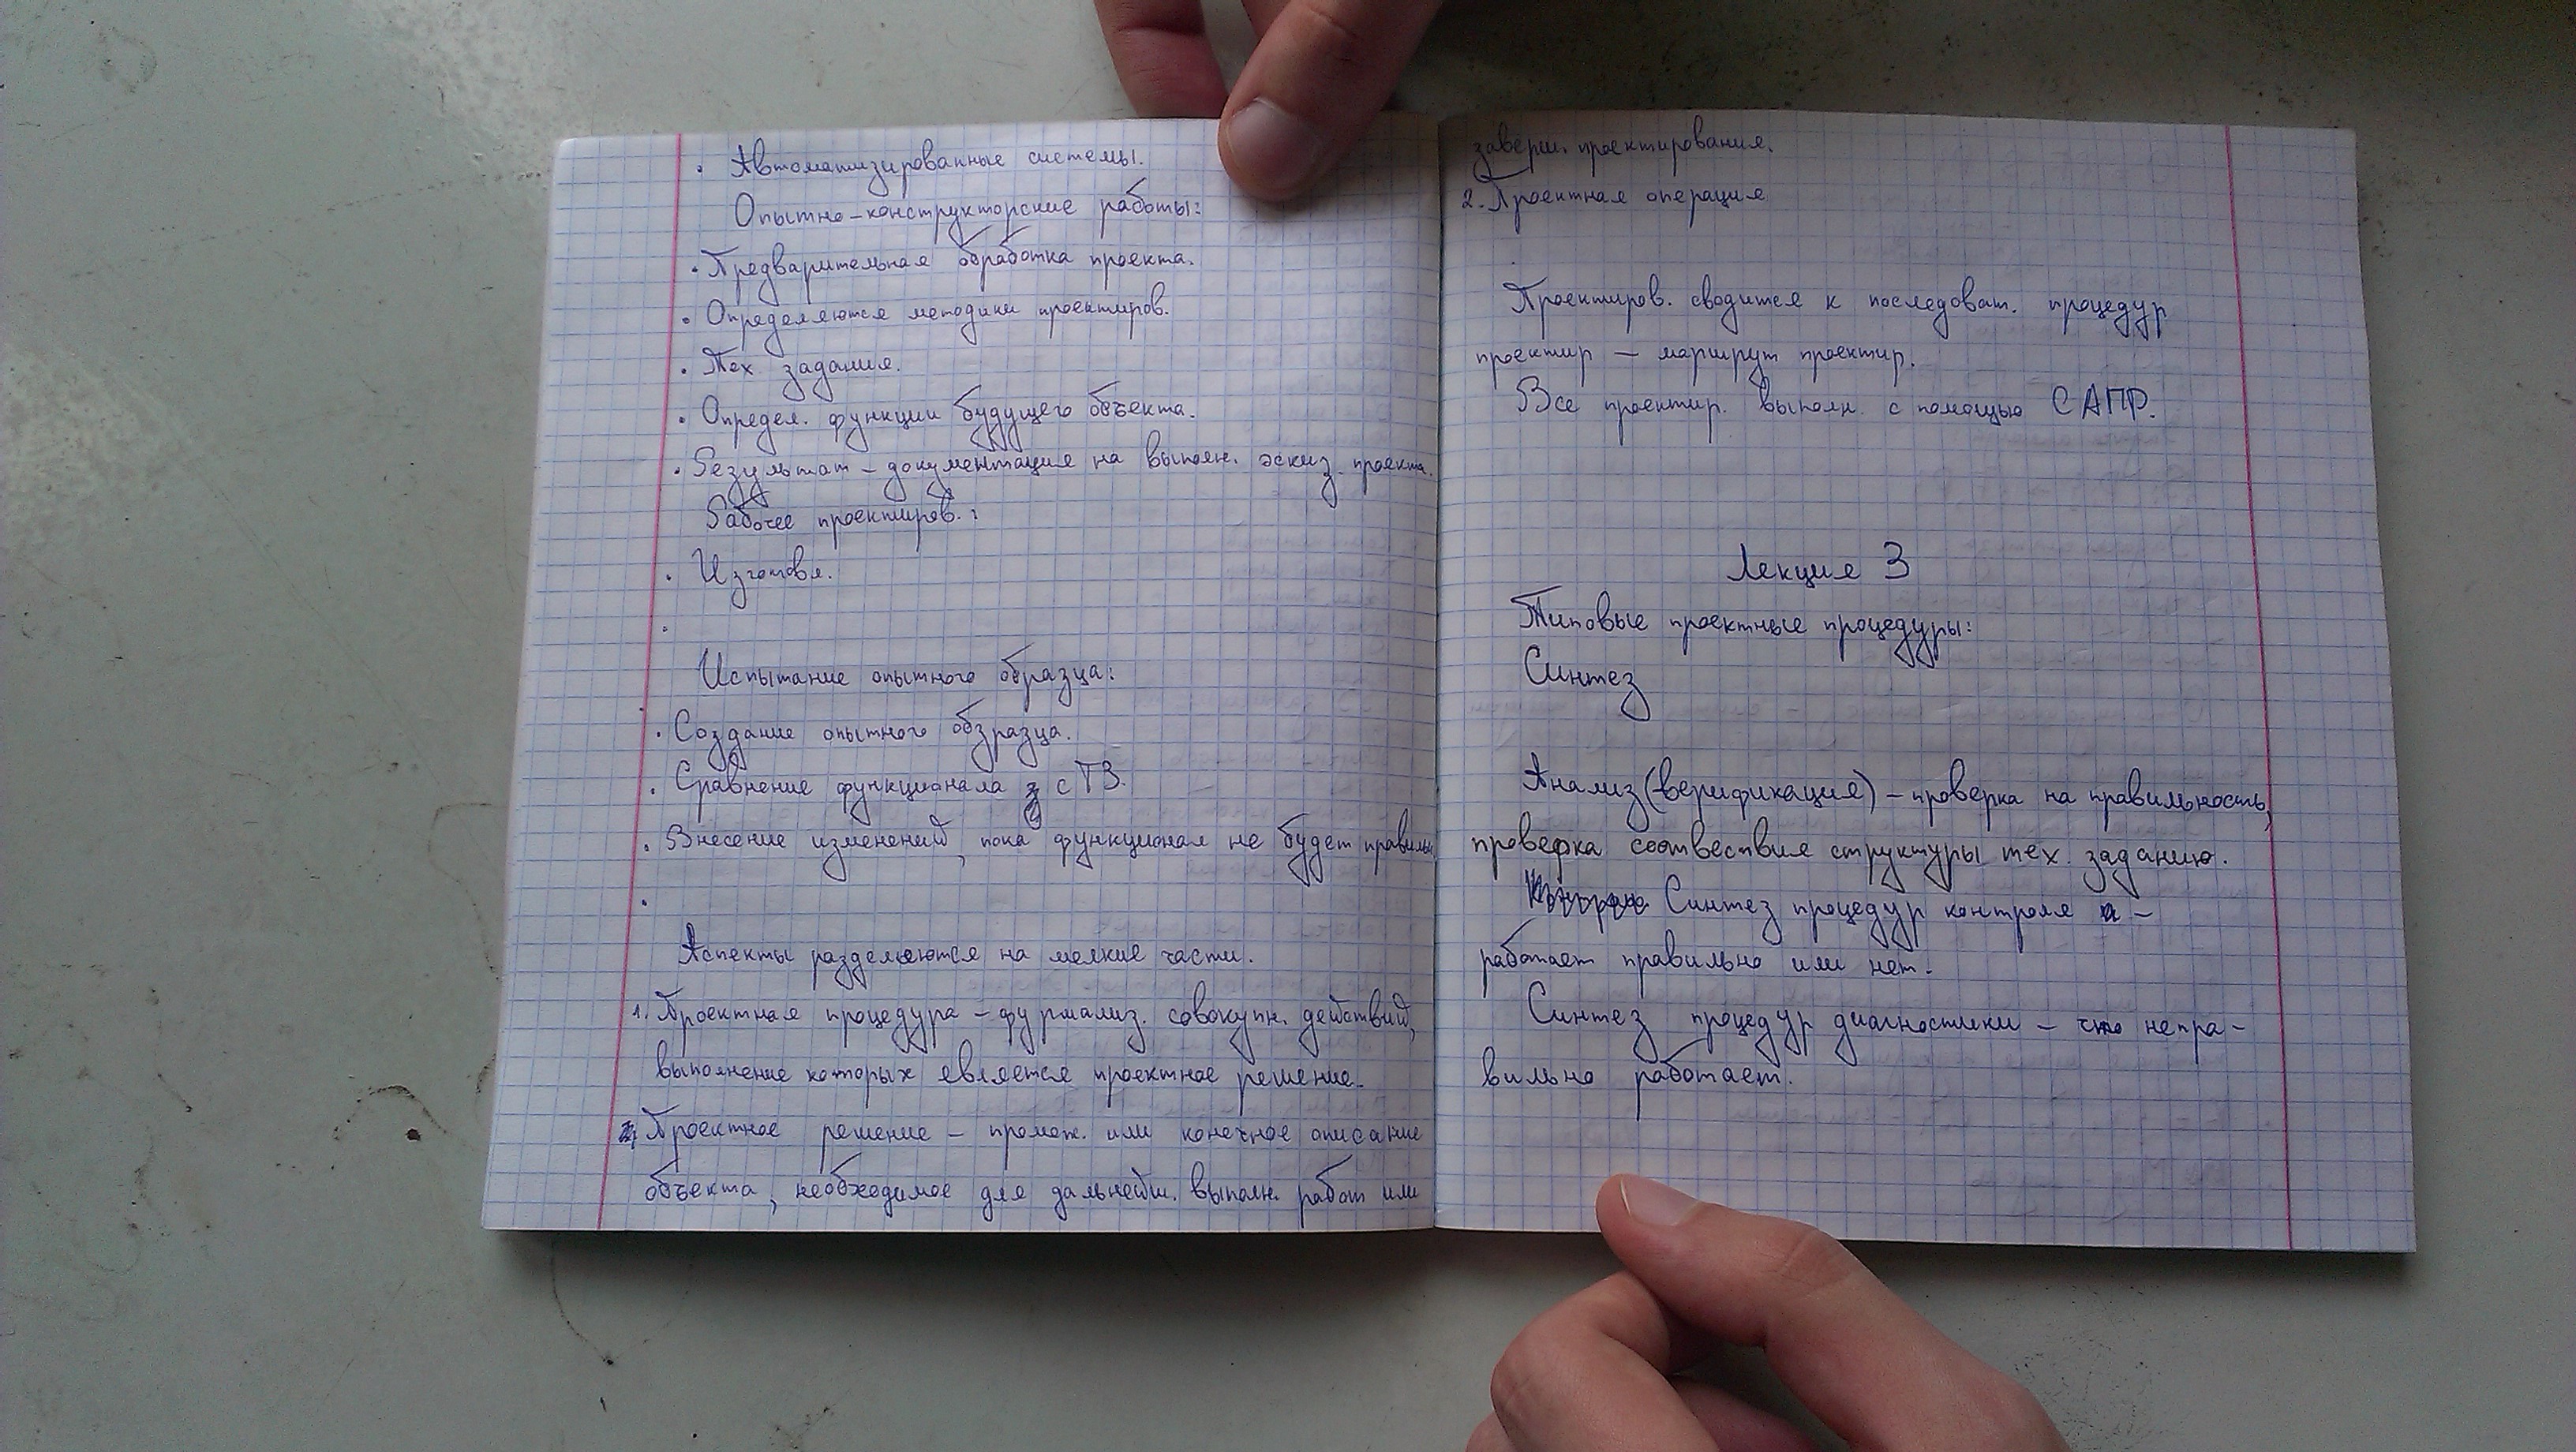 • Автоматизированные системы.
Опытно-конструкторские работы:
• Предварительная обработка проекта.
• Определяются методики проектиров.
• Тех. задания.
• Определ. функции будущего объекта.
• Результат - документация на выполн. эскиз. проекта.
Рабочее проектиров.:
• Изготовл.
•
Испытание опытного образца:
• Создание опытного обзразца.
• Сравнение функционала с ТЗ.
• Внесение изменений, пока функционал не будет правильн
•
Аспекты разделяются на мелкие части.
1. Проектная процедура - формализ. совокупн. действий,
выполнение которых является проектное решение.
Проектное решение - промеж. или конечное описание
объекта, необходимое для дальнейш. выполн. работ или
заверш. проектирования.
2. Проектная операция
Проектиров. сводится к последоват. процедур
проектир — маршрут проектир.
Все проектир. выполн. с помощью САПР.
Лекция 3
Типовые проектные процедуры:
Синтез
Анализ (верификация) - проверка на правильность,
проверка соотвествия структуры тех. заданию.
Синтез процедур контроля -
работает правильно или нет.
Синтез процедур диагностики - что непра-
вильно работает.